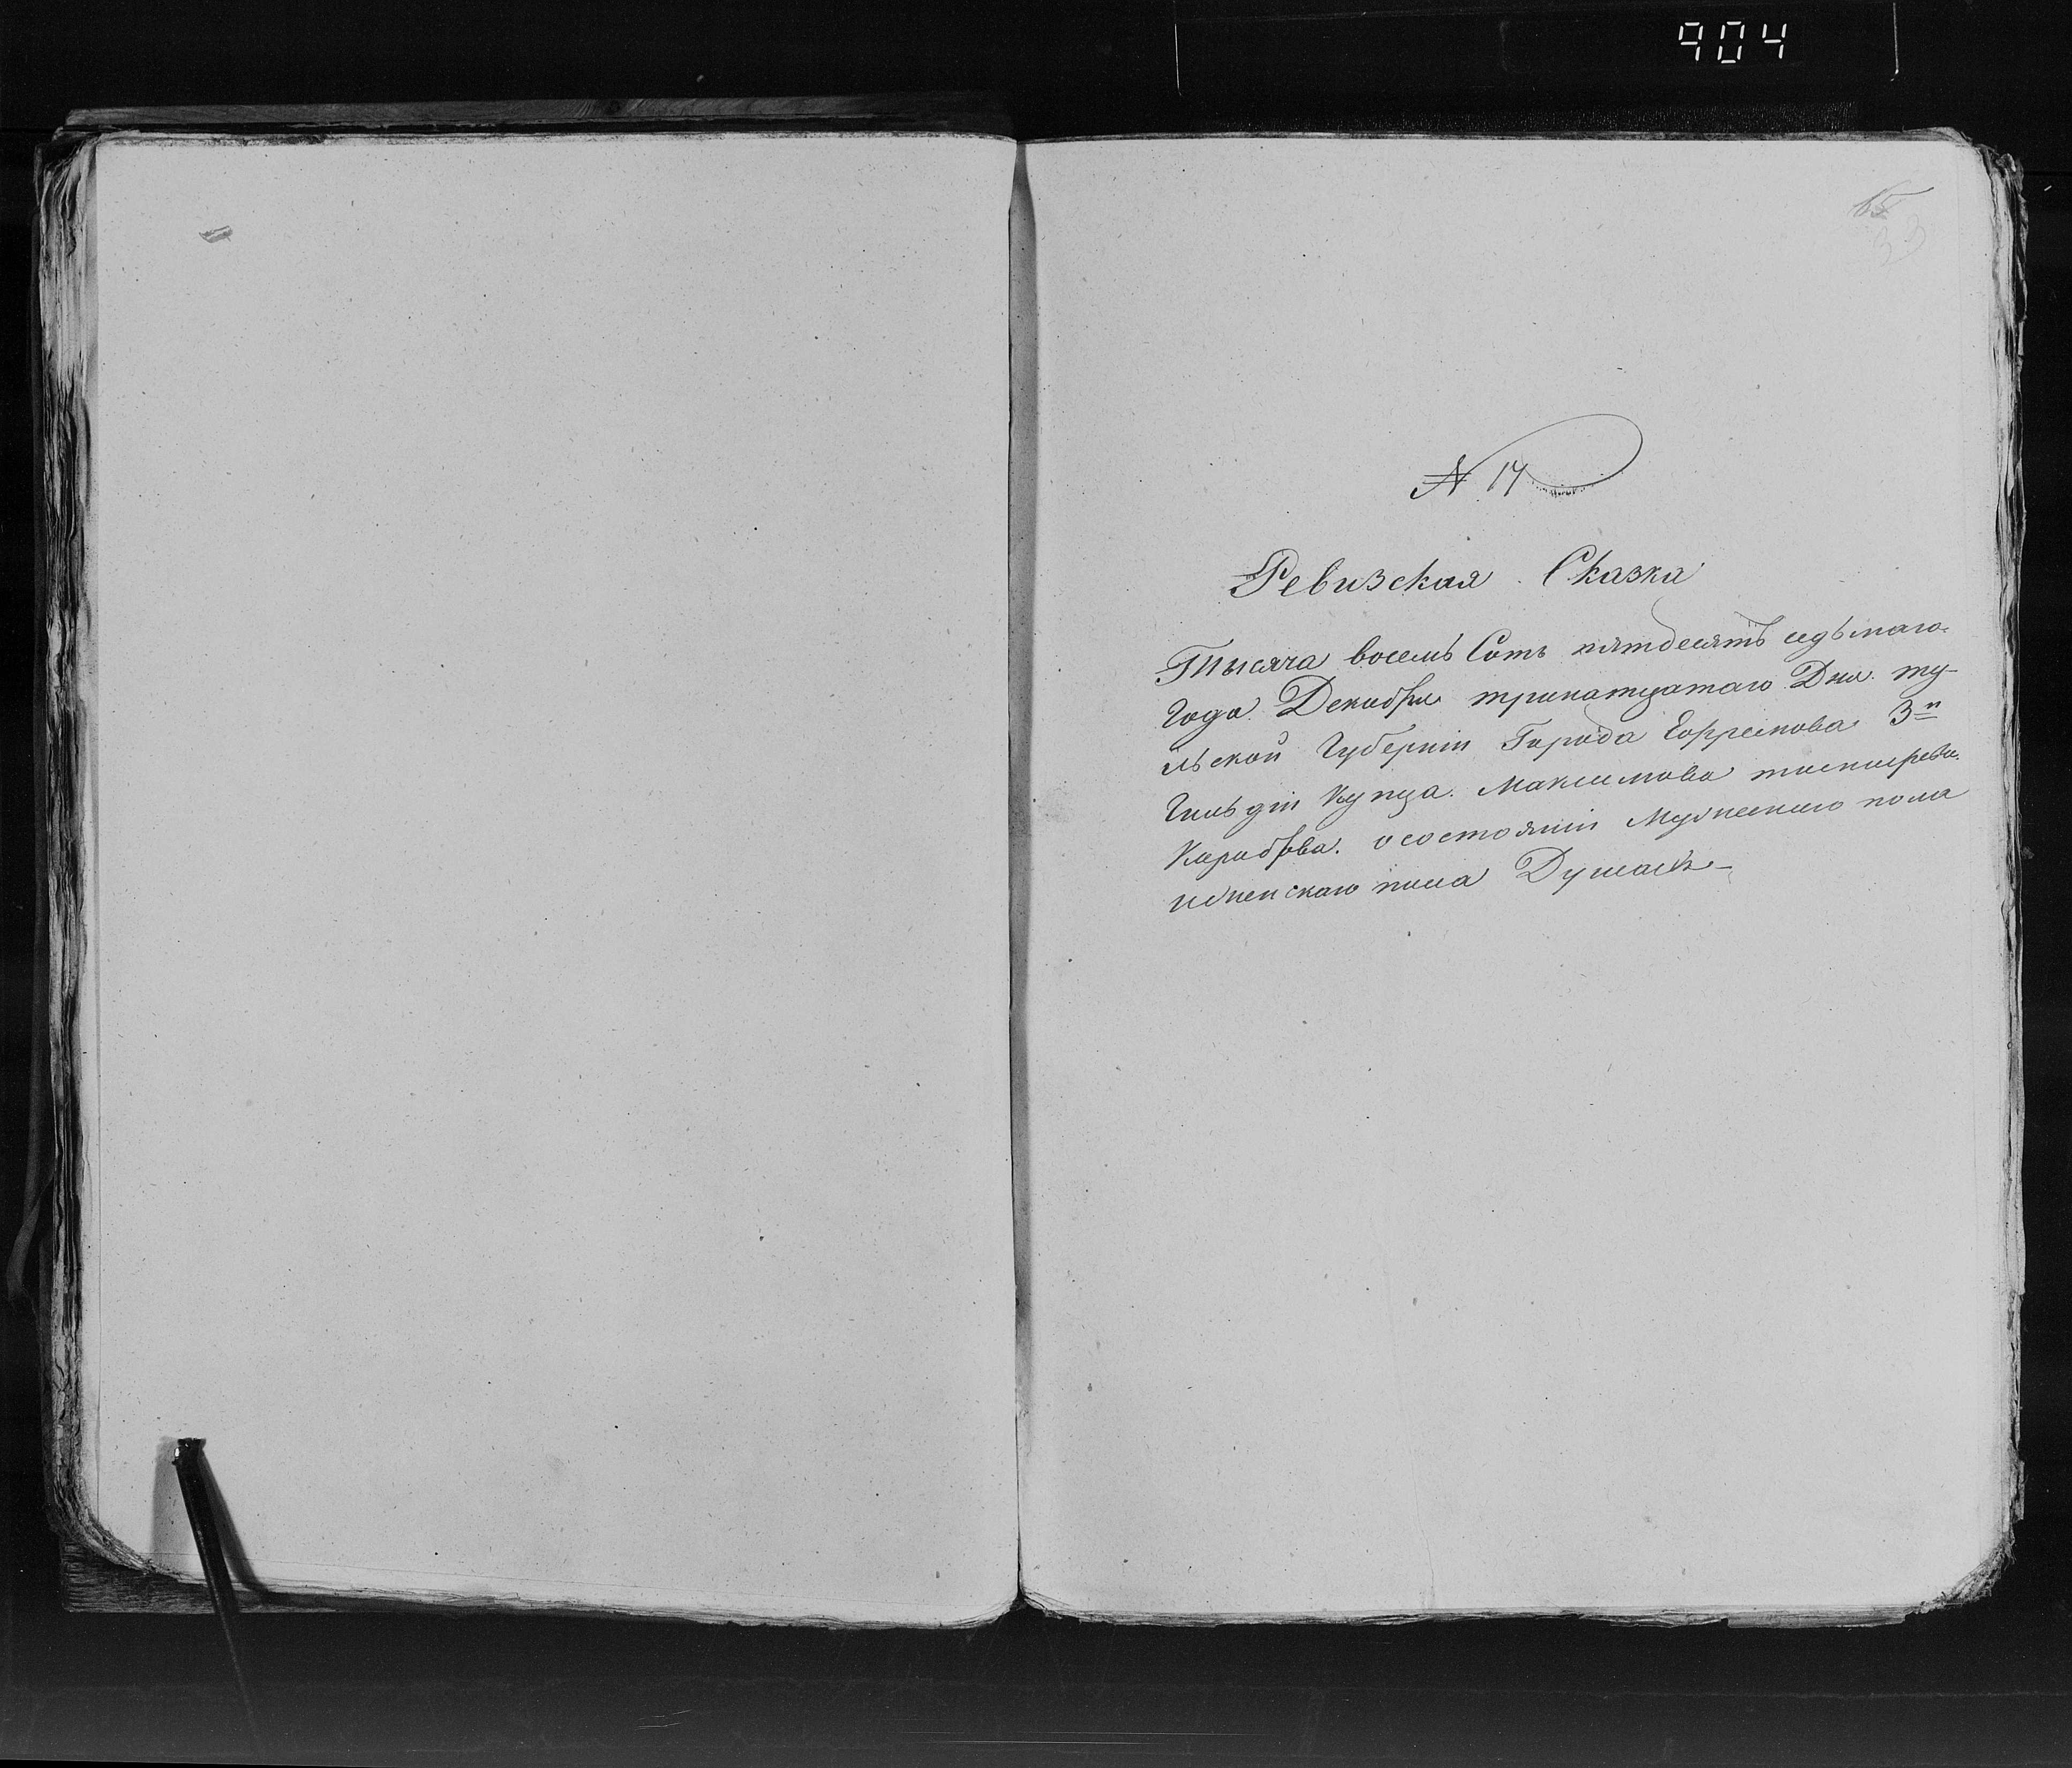 904
15
33
№ 17
Ревизская Сказка
Тысяча восемь Сотъ пятдесятъ седьмаго
Года Декабря тринатцатаго Дня ту-
льской Губерніи Города Ефремова 3й
Гильдіи Купца Максимова
о состояніи Мужескаго пола
и женскаго пола Душахъ